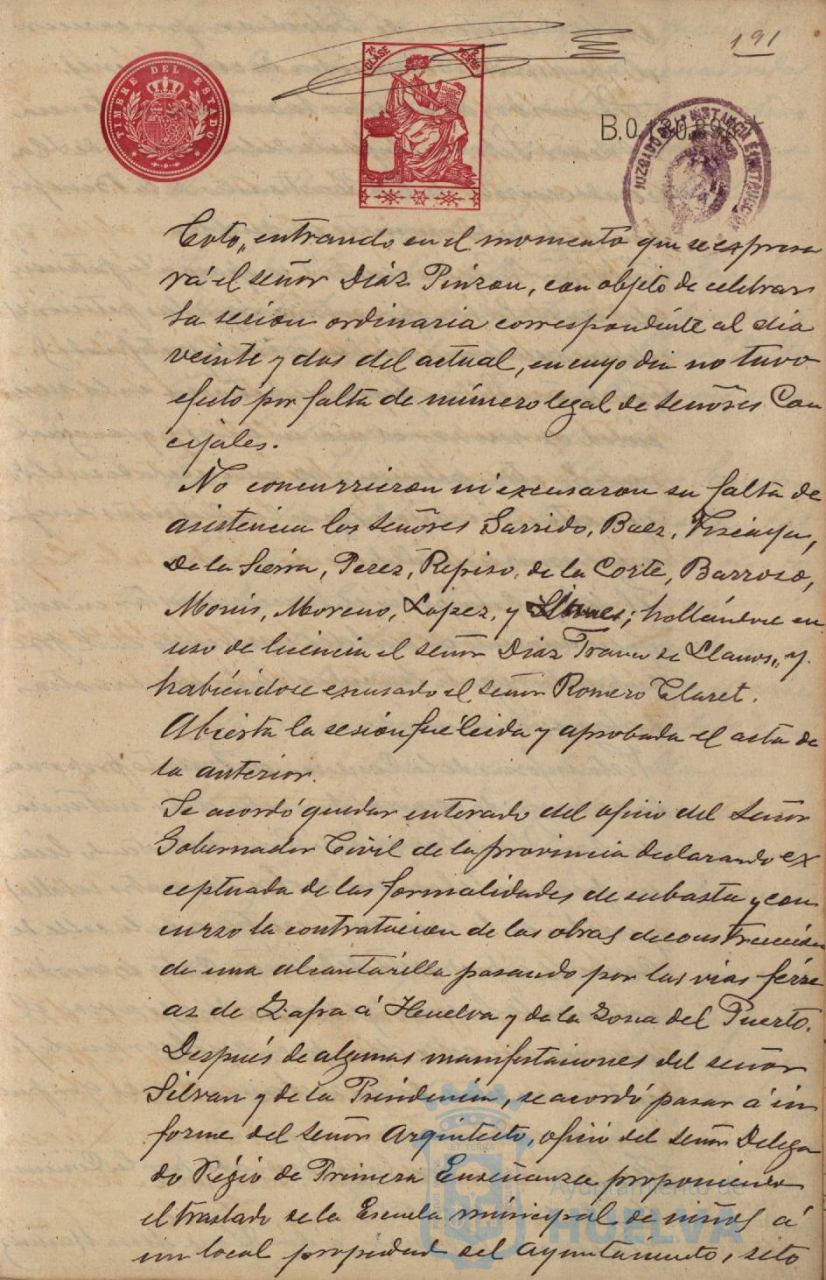 191
TIMBRE DEL ESTADO
7ª CLASE
B.0.130.898*
Coto, entrando en el momento que se expresa
rá el señor Diáz Pinzon, con objeto de celebrar
la sesion ordinaria correspondiente al dia
veinte y dos del actual, en cuyo dia no tuvo
efecto por falta de número legal de señores Con
cejales.
No concurrieron ni excusaron su falta de
asistencia los señores Garrido, Baez, Vizcaya,
De la Sierra, Perez, Repiso, de la Corte, Barroso,
Monis, Moreno, López, y hallándose en
uso de licencia el señor Diáz Franco de Llanos, y
habiéndose excusado el señor Romero Claret.
Abierta la sesión fué leida y aprobada el acta de
la anterior.
Se acordó quedar enterado del oficio del Señor
Gobernador Civil de la provincia declarando ex
ceptuada de las formalidades de subasta y con
curso la contratacion de las obras de construcción
de una alcantarilla pasando por las vias férre
as de Zafra á Huelva y de la Zona del Puerto.
Después de algunas manifestaciones del señor
Silvan y de la Presidencia, se acordó pasar á in
forme del señor Arquitecto, oficio del señor Delega
do Régio de Primera Enseñanza proponiendo
el traslado de la Escuela municipal de niños á
un local propiedad del Ayuntamiento, sito
Ayuntamiento de
HUELVA